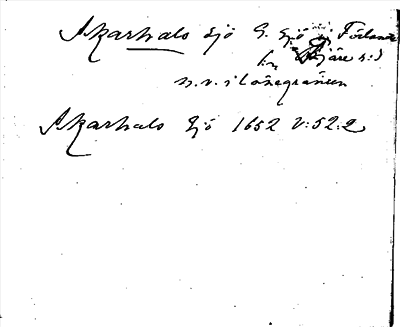 Skarhals sjö G. sjö i Förlanda
Fjäre s:d
n.v. i länsgränsen
Skarhals Sjö 1652 V:52:2